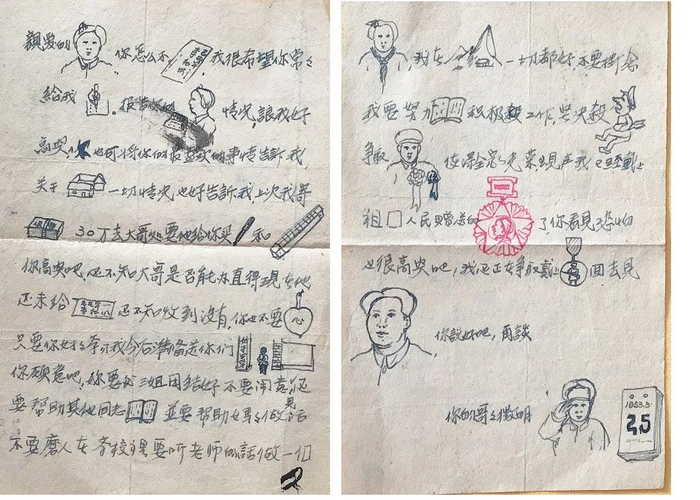 親爱的 你怎么不 我很希望你常々
給我 报告你的 情况,讓我好
高兴,你也可将你们 的事情告訴我
关于 一切情况也好告訴我上次我寄
30万去大哥处要他給你买 和
你高兴吧,还不知大哥是否能办直得現在他
还未给 还不知收到没有,你也不要 心
只要你好々学习我今后準备送你们
你願意吧,你要和三姐团结好不要闹意見还
要帮助其他同志 並要帮助妈々做
不要磨人在学校里要听老师的話做一個
2
,我在 一切都好不要掛念
我要努力 积极 工作,坚决殺
争取 使得全家光荣,現在我已经戴上
祖 人民贈送的 了你看見恐怕
也很高兴吧,我还正在争取戴上 回去見
你說好吧,再談
你的哥々 明
1953.3.
25